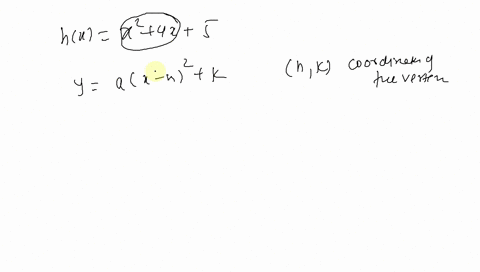 h(x) = x² + 4x + 5
y = a(x - h)² + k
(h, k) coordinate of
the vertex